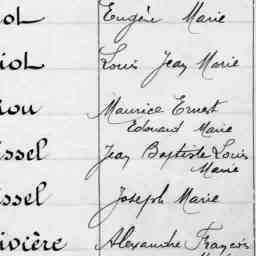 ol Eugène Marie
iol Louis Jean Marie
iou Maurice Ernest
Edouard Marie
issel Jean Baptiste Louis
Marie
issel Joseph Marie
ivière Alexandre François